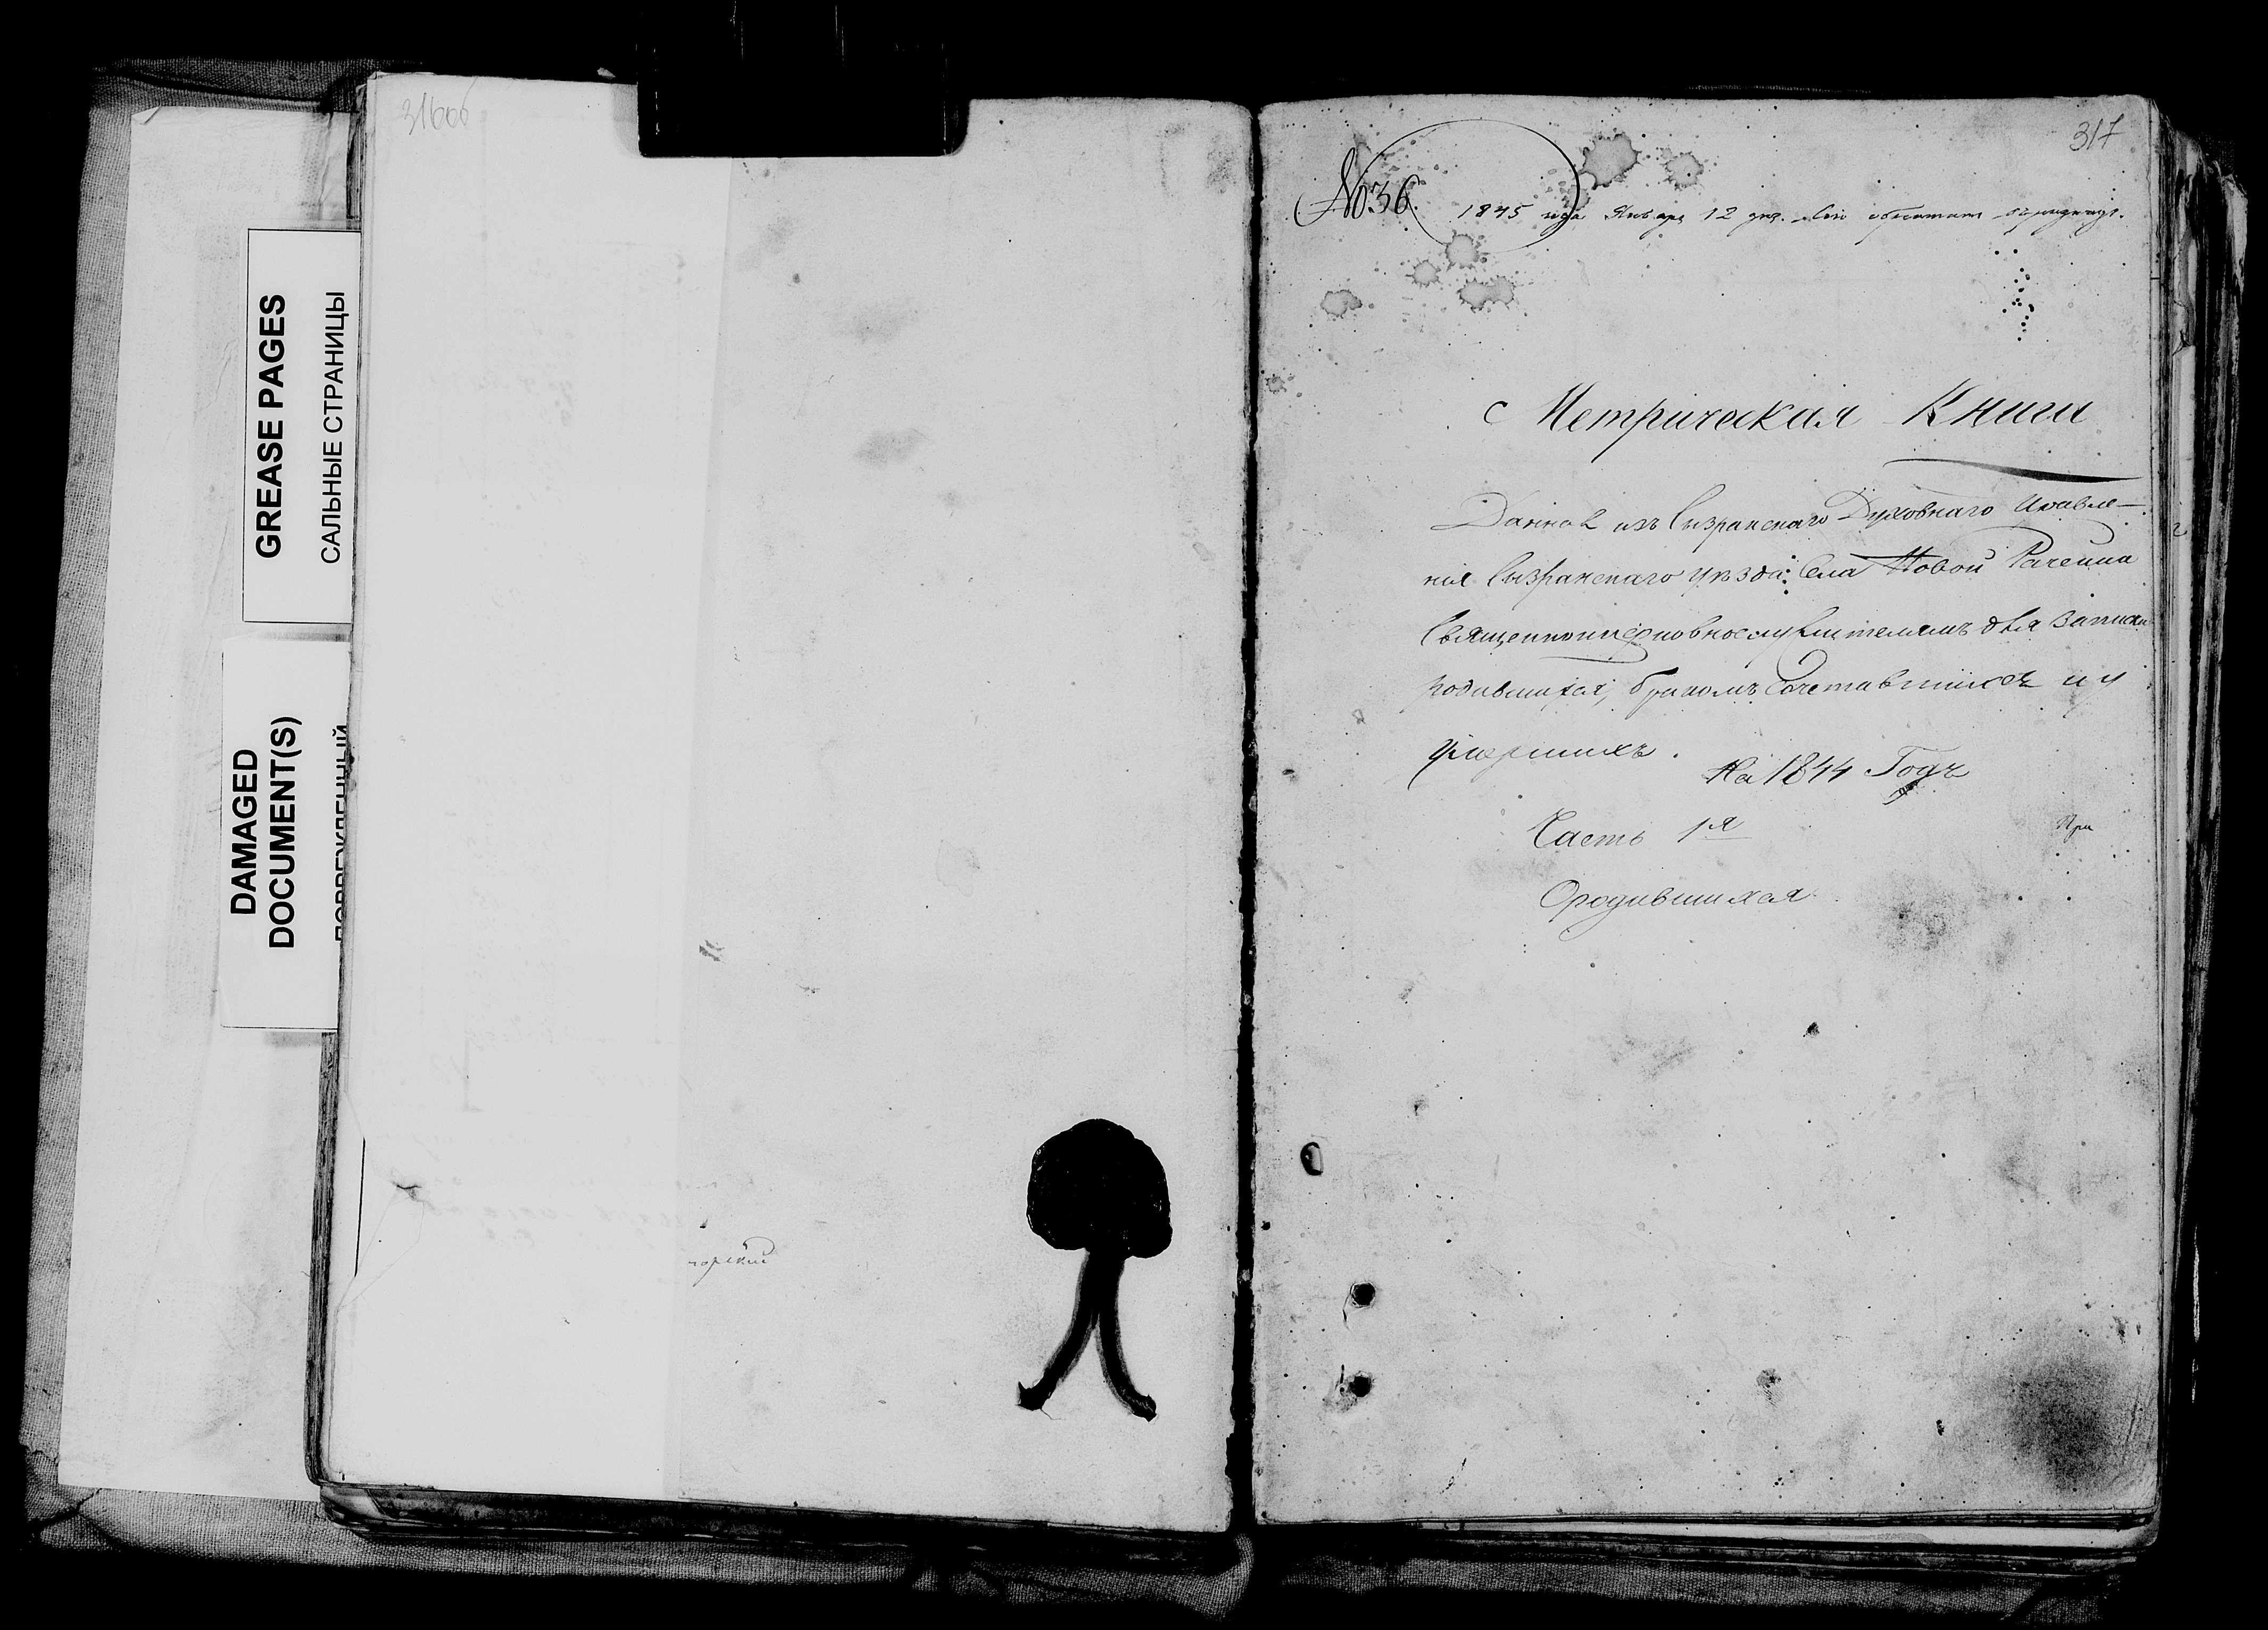 GREASE PAGES
САЛЬНЫЕ СТРАНИЦЫ
DAMAGED
DOCUMENT(S)
316об
317
№36.
1845 года Января 12 дня.
Метрическая Книга
Данная изъ Сызранскаго Духовнаго Правле-
нія Сызранскаго уѣзда: Села Новой Рачейки
Священноцерковнослужителямъ для Записки
родившихся, бракомъ Сочетавшихся и у
умершихъ.
На 1844 Годъ
Часть 1я
При
Ородившихся